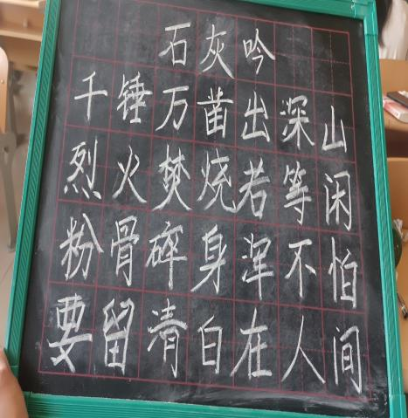 石灰吟
千锤万凿出深山
烈火焚烧若等闲
粉骨碎身浑不怕
要留清白在人间